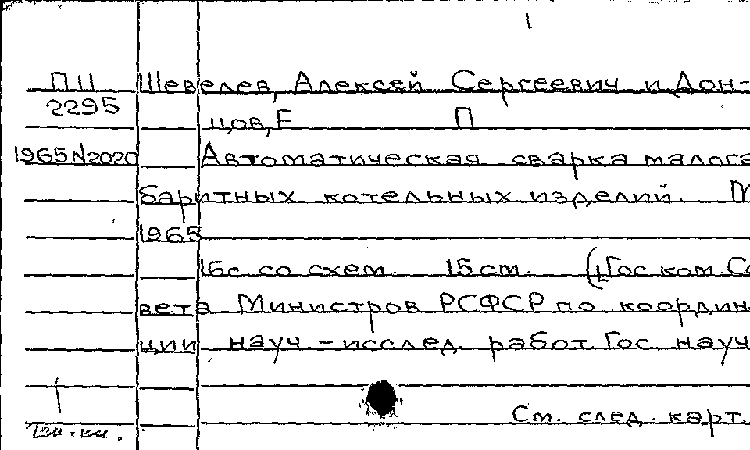 ПЦ Шевелев, Алексей Сергеевич и Дон-
2295
цов, Е П
1965 N2020 Автоматическая сварка малога
баритных котельных изделий. М
1965
16с со схем. 15 см. (Гос ком Со
вета Министров РСФСР по координ
ции науч-исслед. работ. Гос науч
См. след. карт.